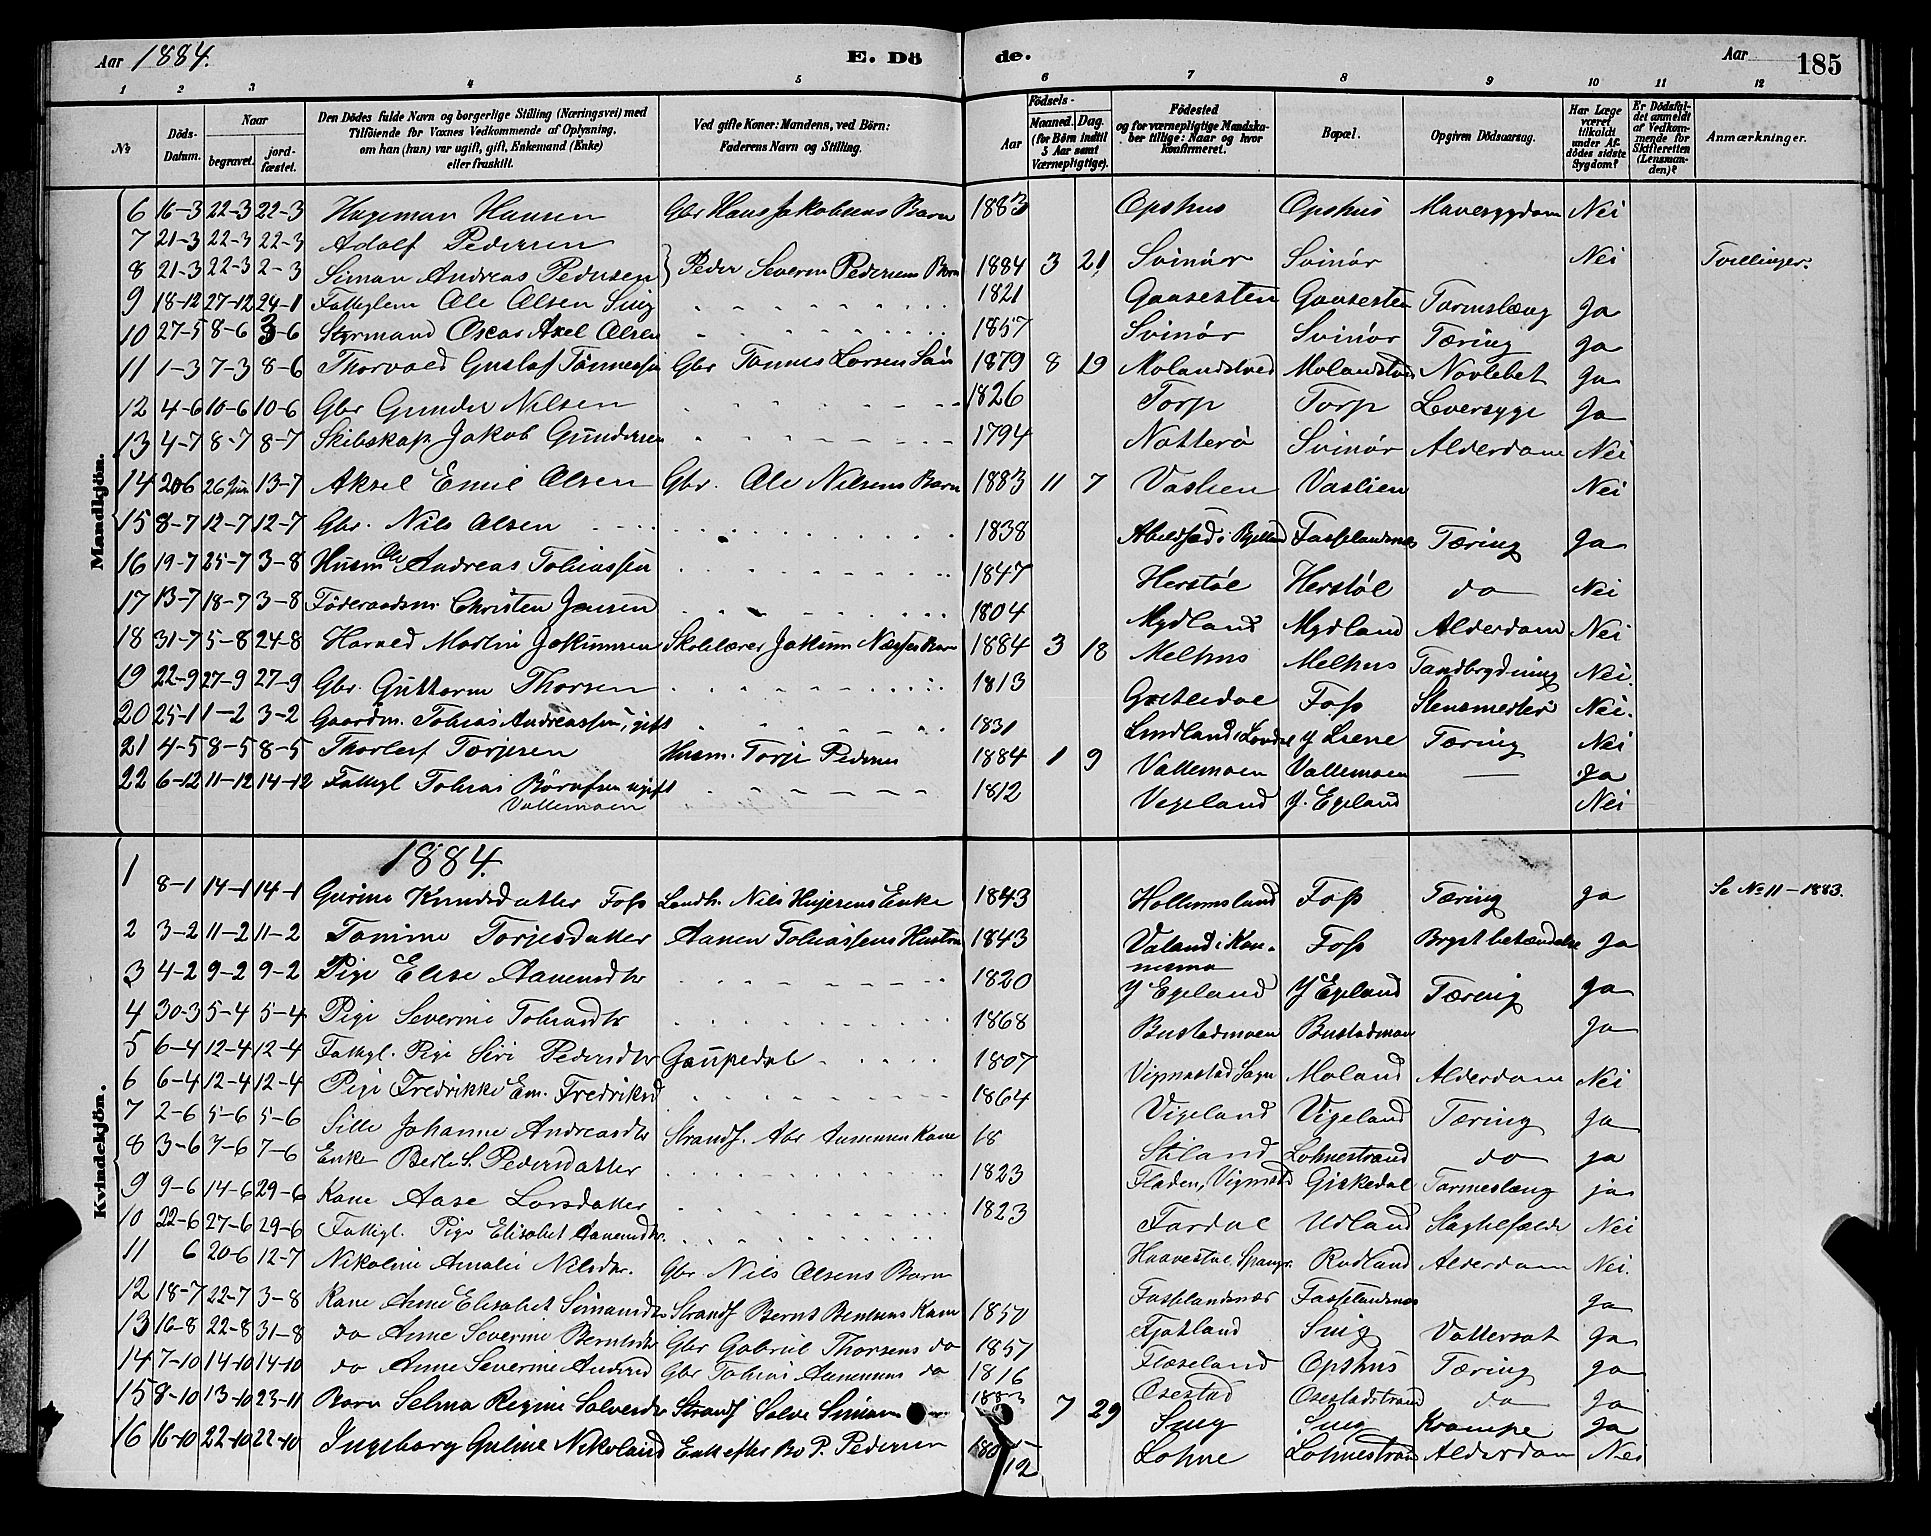 Aar 1884. E. Dö de. Aar 185
1 2 3 4 5 6 7 8 9 10 11 12
No. Döds-Datum. Naar begravet. jordfæstet. Den Dödes fulde Navn og borgerlige Stilling (Næringsvei) med Tilföiende for Voxnes Vedkommende af Oplysning, om han (hun) var ugift, gift, Enkemand (Enke) eller fraskilt. Ved gifte Koner: Mandens, ved Börn: Faderens Navn og Stilling. Födsels- Aar Maaned. Dag. (for Börn indtil 5 Aar samt Værnepligtige). Födested og for værnepligtige Mandskaber tillige: Naar og hvor konfirmeret. Bopæl. Opgiven Dödsaarsag. Har Læge været tilkaldt under Afdödes sidste Sygdom? Er Dödsfaldet anmeldt af Vedkommende for Skifteretten (Lensmanden)? Anmærkninger.
Mandkjön.
6 16-3 22-3 22-3 Hageman Hansen Gbr Hans Jakobsens Barn 1883 Opshus Opshus Mavesygdom Nei
7 21-3 22-3 22-3 Adolf Pedersen
8 21-3 22-3 2-3 Simon Andreas Pedersen } Peder Severin Pedersens Barn 1884 3 21 Svinör Svinör Nei Tvillinger.
9 18-12 27-12 24-1 Fattiglem Ole Olsen Snig 1821 Gaasesten Gaasesten Tarmslæng Ja
10 27-5 8-6 3-6 Styrmand Oscar Axel Olsen 1857 Svinör Svinör Tæring Ja
11 1-3 7-3 8-6 Thorvald Gustaf Tönnessen Gbr Tønnes Larsen Sön 1879 8 19 Molandsved Molandsved Ja
12 4-6 10-6 10-6 Gbr Gunder Nilsen 1826 Torp Torp Leversyge Ja
13 4-7 8-7 8-7 Skibskap. Jakob Gundersen 1794 Nötterö Svinör Alderdom Nei
14 206 26 Juni 13-7 Aksel Emil Olsen Gbr. Ole Nilsens Barn 1883 11 7 Vaslien Vaslien Nei
15 8-7 12-7 12-7 Gbr. Nils Olsen 1838 i Bjelland Fasselandsnæs Tæring Ja
16 19-7 25-7 3-8 Husm Ole Andreas Tobiassen 1847 Herstöl Herstöl do Nei
17 13-7 18-7 3-8 Föderaadsm. Christen Jensen 1804 Mydland Mydland Alderdom Nei
18 31-7 5-8 24-8 Harald Martin Jokumsen Skolelærer Jokum Barn 1884 3 18 Melhus Melhus Tandbrydning Nei.
19 22-9 27-9 27-9 Gbr. Guttorm Thorsen 1813 Foss Nei.
20 25-1 1-2 3-2 Gaardm. Tobias Andreassen, gift 1831 Lindland i Y Liene Tæring Nei
21 4-5 8-5 8-5 Thorleif Torjesen Husm. Torje Pedersen 1884 1 9 Vallemoen Vallemoen — Ja
22 6-12 11-12 14-12 Fattigl Tobias ugift 1812 Vegeland Y. Egeland Nei
Vallemoen
Kvindekjön.
1884.
1 8-1 14-1 14-1 Gurine Knudsdatter Foss Landh. Nils Enke 1843 Hollumsland Foss Tæring Ja Se No 11-1883.
2 3-2 11-2 11-2 Tomine Torjesdatter Aanen Tobiassens Hustru 1843 Valand i Kon- Foss Brystbetændelse Ja
3 4-2 9-2 9-2 Pige Elise Aanensdtr 1820 Y Egeland Y Egeland Tæring Ja
4 30-3 5-4 5-4 Pige Severine Tobiasdtr 1868 Bustadmoen Bustadmoen Ja
5 6-4 12-4 12-4 Fattigl. Pige Siri Pedersdtr Gaupedal 1807 Vigmostad Sogn Moland Alderdom Nei
6 6-4 12-4 12-4 Pige Fredrikke Em. Fredriksd 1864 Vigeland Vigeland Tæring Ja
7 2-6 5-6 5-6 Sille Johanne Andreasdtr Strands. Abr Aanensen Kone 18 Stiland Lohnestrand do ja
8 3-6 7-6 7-6 Enke Berte S. Pedersdatter 1823 Fladen, Vigmostad Giskedal Tarmeslæng ja
9 9-6 14-6 29-6 Kone Aase Larsdatter 1823 Fardal Udland Nei
10 22-6 27-6 29-6 Fattigl. Pige Elisabet Aanensdtr. Rodland Alderdom Nei.
11 6 20-6 12-7 Nikoline Amalie Nilsdtr. Gbr Nils Olsens Barn Fasselandsnæs Fasselandsnæs Ja
12 18-7 22-7 3-8 Kone Anne Elisabet Simonsdtr Strands Bernt Bentsens Kone 1850 Fjotland Snig Vattersot Ja
13 16-8 22-8 31-8 do Anne Severine Berntsdtr Gbr Gabriel Thorsens do 1857 Flaseland Opshus Tæring Ja
14 7-10 14-10 14-10 do Anne Severine Andersd Gbr Tobias Aanensens do 1816 Osestad Osestadstrand do Ja
15 8-10 13-10 23-11 Barn Selma Regine Salvesdtr Strands Salve Simon 1883 7 29 Snig Snig Krampe Ja
16 16-10 22-10 22-10 Ingeborg Guline Nikolaisd Enke efter Bo P. Pedersen 12 Lohne Lohnestrand Alderdom Nei